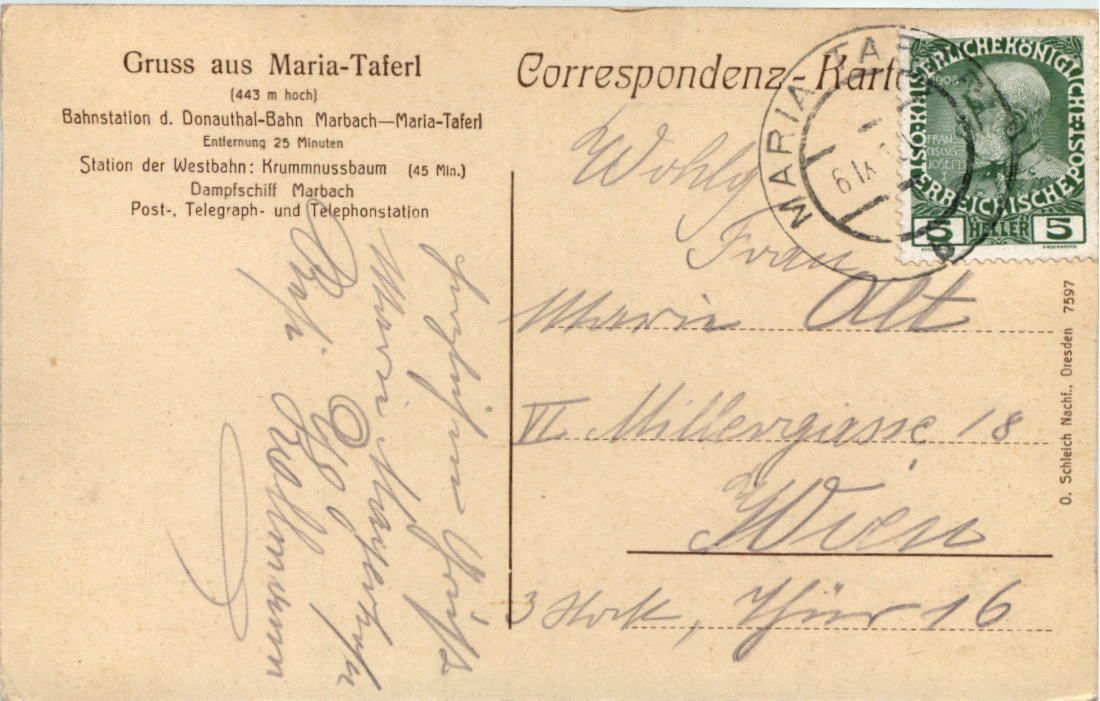 Gruss aus Maria-Taferl
(443 m hoch)
Bahnstation d. Donauthal-Bahn Marbach—Maria-Taferl
Entfernung 25 Minuten
Station der Westbahn: Krummnussbaum (45 Min.)
Dampfschiff Marbach
Post-, Telegraph- und Telephonstation
Correspondenz-Karte
MARIA TAFERL
6 IX
KAISERLICHE KÖNIGLICHE
ÖSTERREICHISCHE POST
1908
FRAN-
CISCUS
JOSEPH
I.
5 HELLER 5
Wohlg
Frau
Marie Alt
VI Millergasse 18
Wien
3 Stock, Thür 16
O. Schleich Nachf., Dresden 7597
Marie